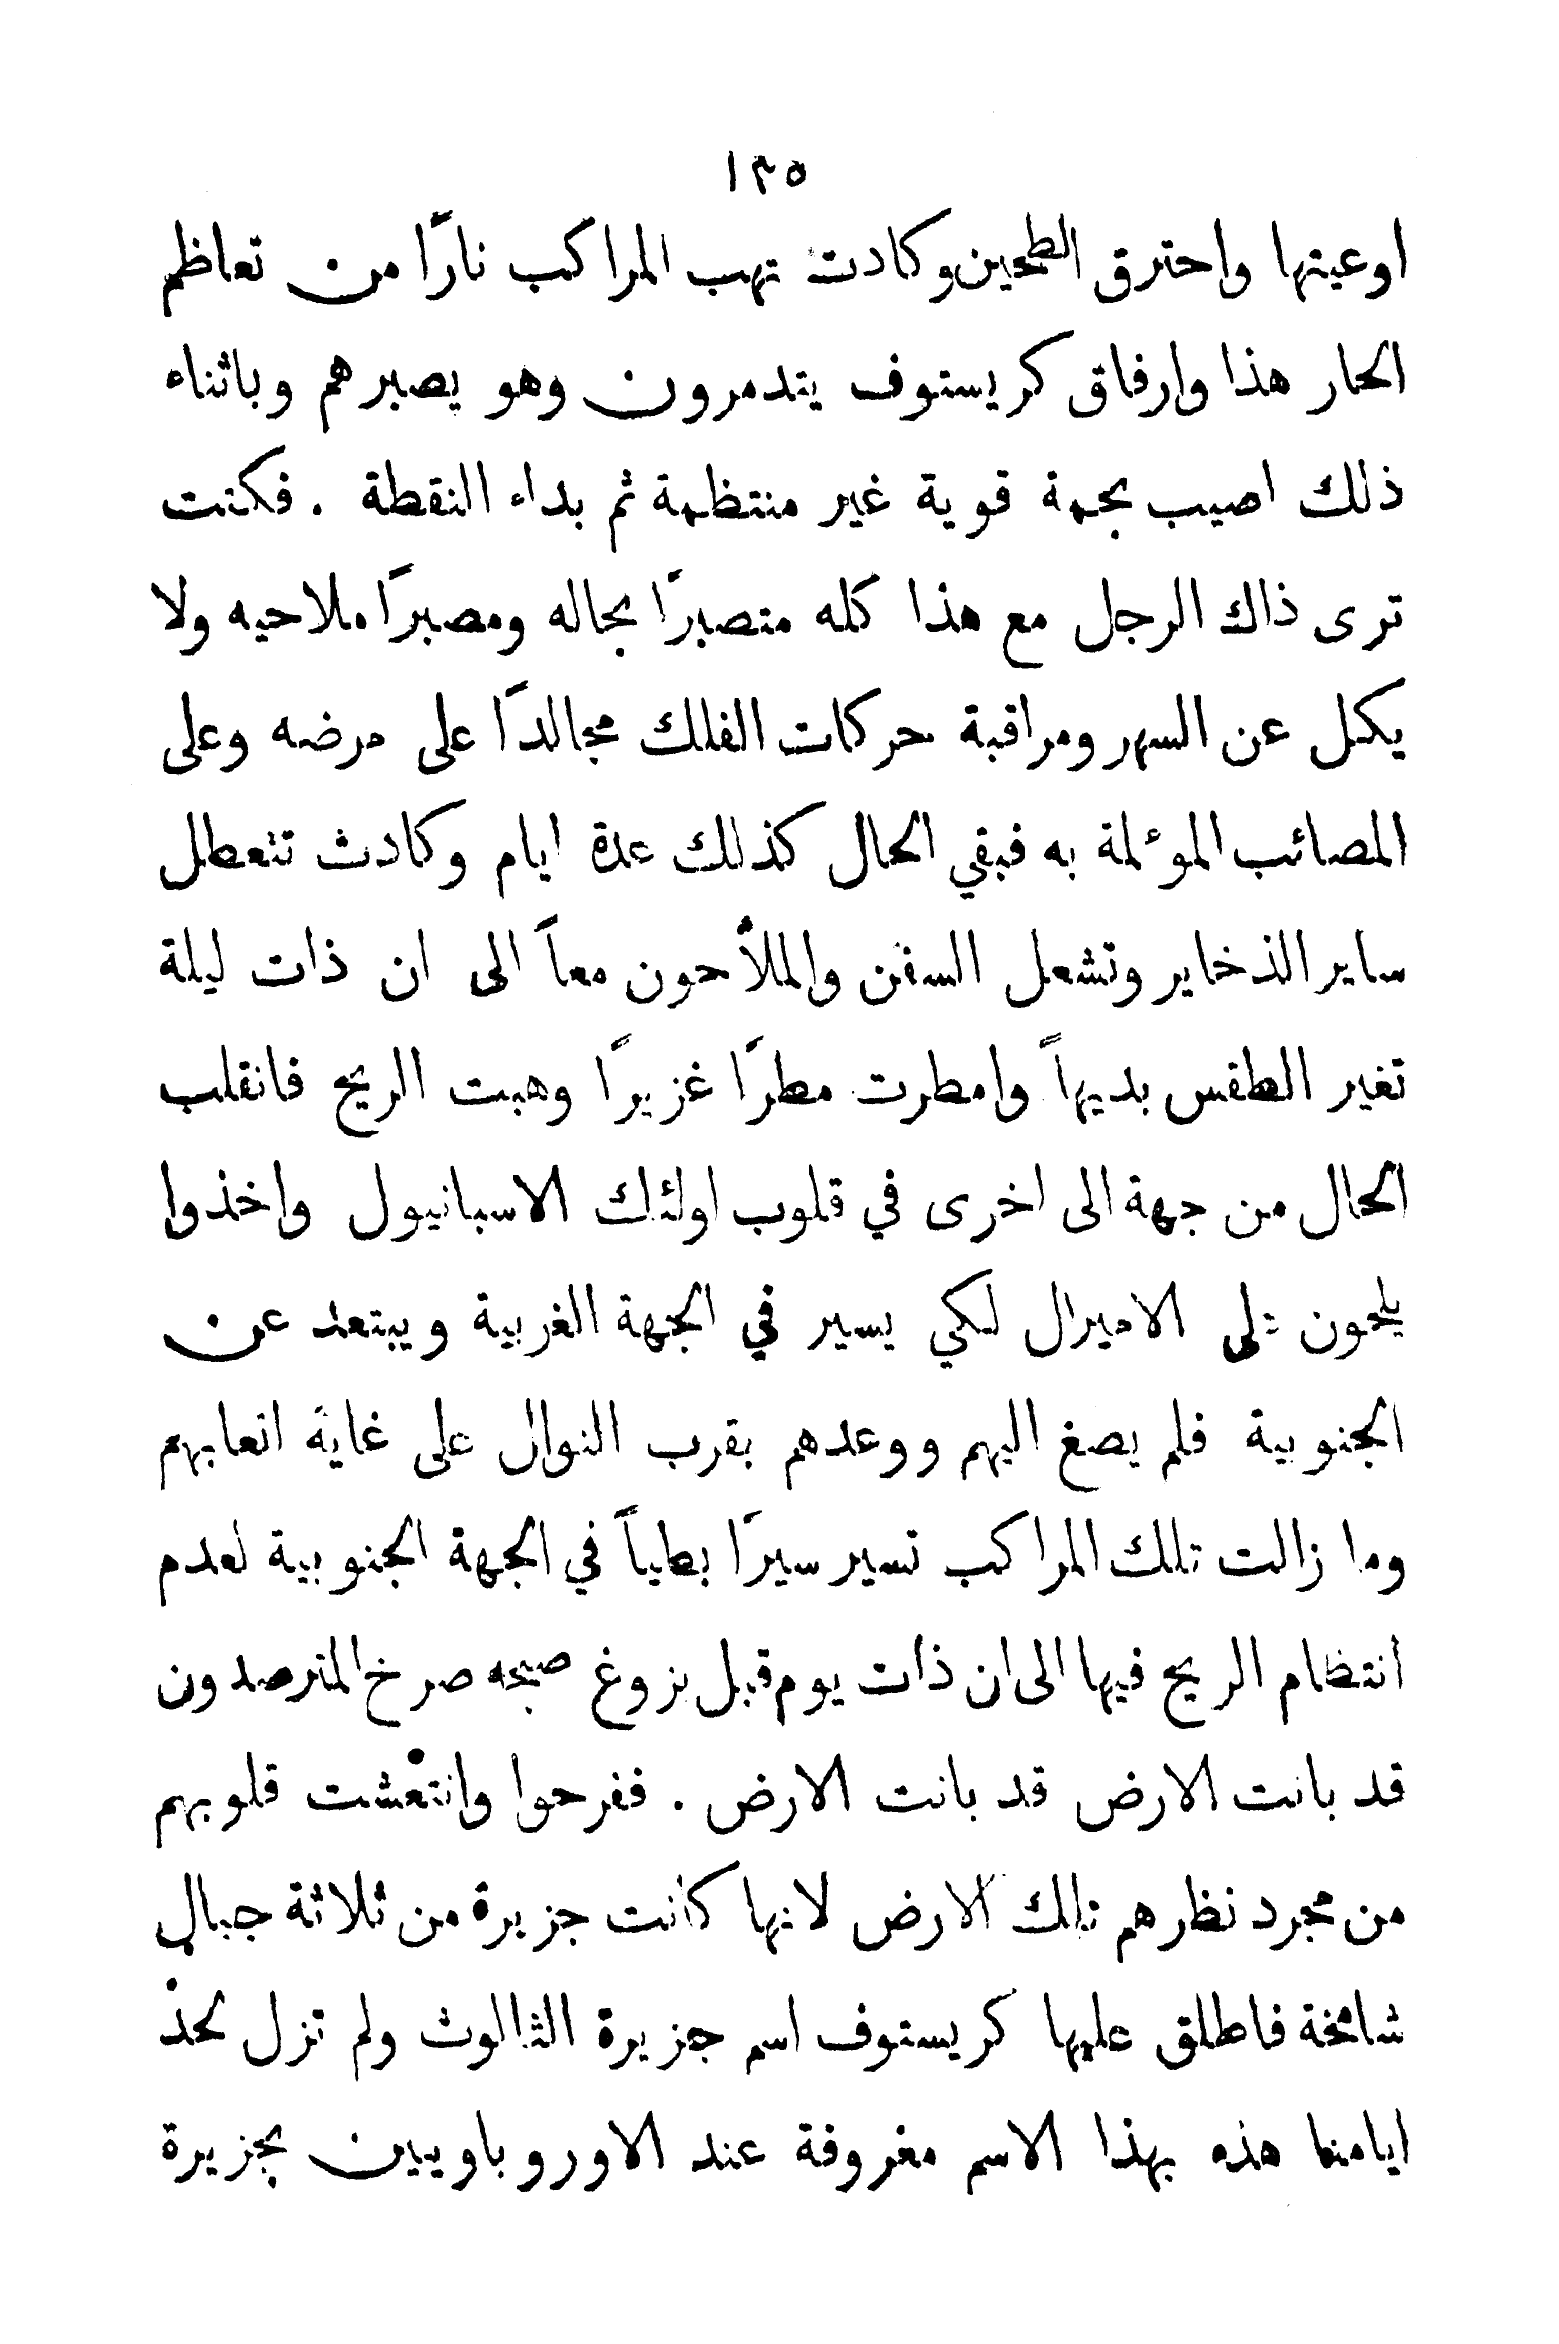 ١٣٥
اوعيتها واحترق الطحين وكادت تهب المراكب نارًا من تعاظم
الحار هذا وارفاق كريستوف يتدمرون وهو يصبرهم وباثناء
ذلك اصيب بحمة قوية غير منتظمة ثم بداء النقطة . فكنت
ترى ذاك الرجل مع هذا كله متصبرًا بحاله ومصبرًا ملاحيه ولا
يكل عن السهر ومراقبة حركات الفلك مجالدًا على مرضه وعلى
المصائب الموٴلمة به فبقي الحال كذلك عدة ايام وكادت تتعطل
ساير الذخاير وتشعل السفن والملأحون معاً الى ان ذات ليلة
تغير الطقس بديهاً وامطرت مطرًا غزيرًا وهبت الريح فانقلب
الحال من جهة الى اخرى في قلوب اولئك الاسبانيول واخذوا
يلحون على الاميرال لكي يسير في الجهة الغربية ويبتعد عن
الجنوبية فلم يصغ اليهم ووعدهم بقرب النوال على غاية اتعابهم
وما زالت تلك المراكب تسير سيرًا بطياً في الجهة الجنوبية لعدم
انتظام الريح فيها الى ان ذات يوم قبل بزوغ صبحه صرخ المترصدون
قد بانت الارض قد بانت الارض . ففرحوا وانتعشت قلوبهم
من مجرد نظرهم تلك الارض لانها كانت جزيرة من ثلاثة جبال
شامخة فاطلق عليها كريستوف اسم جزيرة الثالوث ولم تزل لحذ
ايامنا هذه بهذا الاسم معروفة عند الاوروباويين بجزيرة